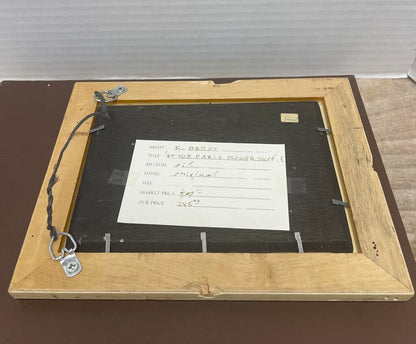 ARTIST E. BARRY
TITLE "AT THE PARIS FLOWER SHOP"
MEDIUM oil
EDITION original
SIZE
MARKET PRICE
OUR PRICE 145⁰⁰